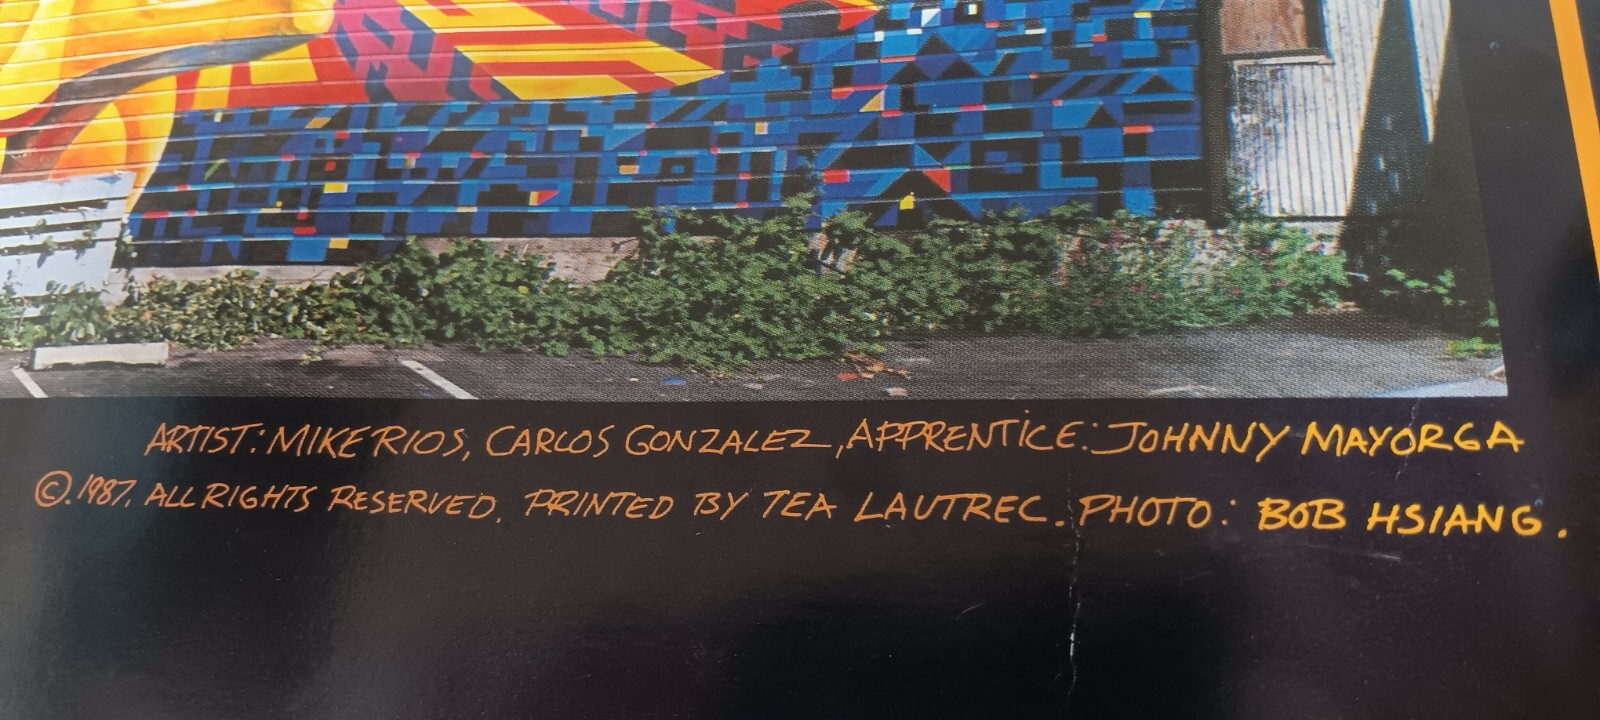 ARTIST: MIKE RIOS, CARLOS GONZALEZ, APPRENTICE: JOHNNY MAYORGA
©. 1987. ALL RIGHTS RESERVED. PRINTED BY TEA LAUTREC. PHOTO: BOB HSIANG.